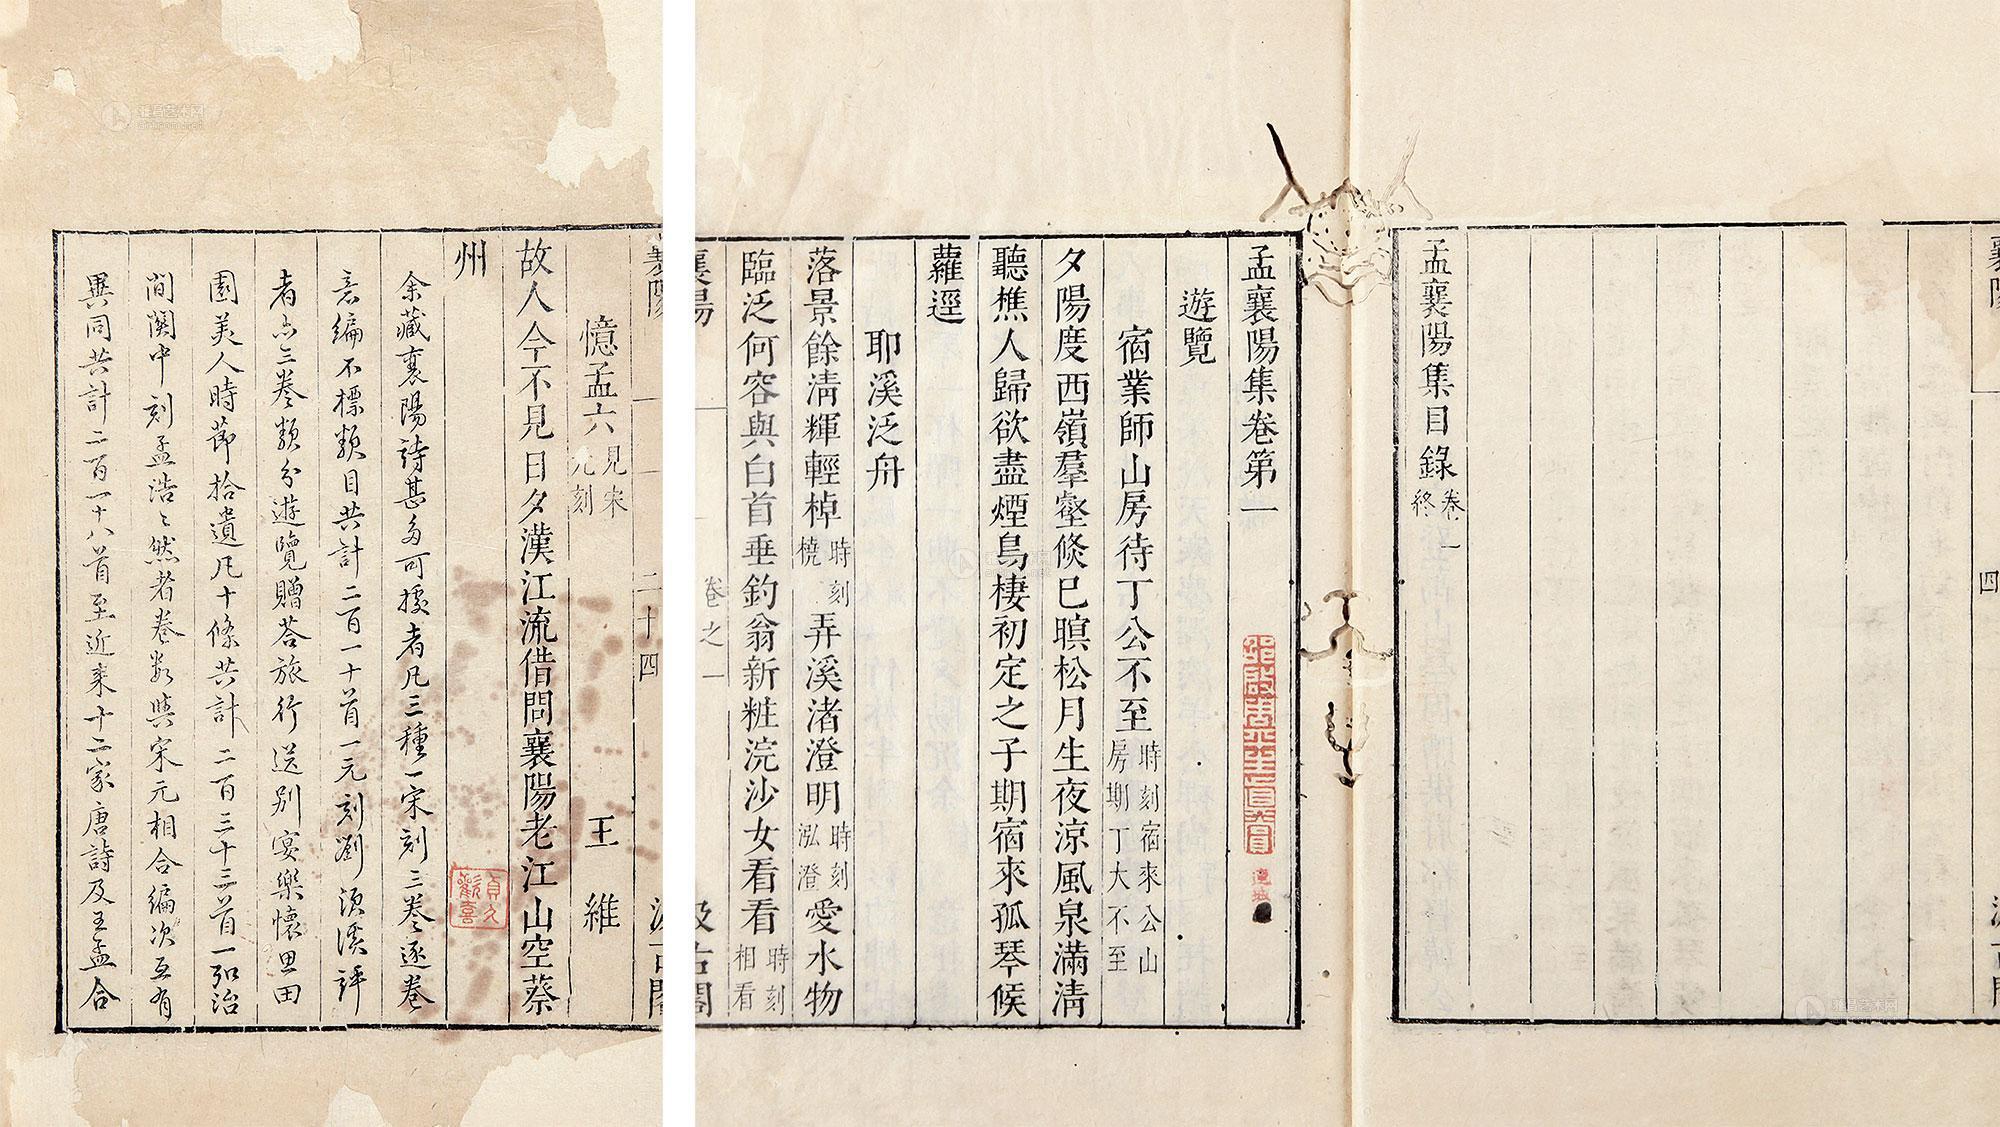 襄陽
四
孟襄陽集目錄 卷一終
孟襄陽集卷第一
遊覽
宿業師山房待丁公不至 時刻宿來公山房期丁大不至
夕陽度西嶺羣壑倐已暝松月生夜涼風泉滿清
聽樵人歸欲盡煙鳥棲初定之子期宿來孤琴候
蘿逕
耶溪泛舟
落景餘清輝輕棹 時刻橈 弄溪渚澄明 時刻泓澄 愛水物
臨泛何容與白首垂釣翁新粧浣沙女看看 時刻相看
襄陽 卷之一 汲古閣
襄陽 二十四 汲古閣
憶孟六 見宋元刻 王維
故人今不見日夕漢江流借問襄陽老江山空蔡
州
余藏襄陽詩甚多可據者凡三種一宋刻三卷逐卷
意編不標類目共計二百一十首一元刻劉須溪評
者亦三卷類分遊覽贈荅旅行送別宴樂懷思田
園美人時節拾遺凡十條共計二百三十三首一弘治
間關中刻孟浩然者卷數與宋元相合編次互有
異同共計二百一十八首至近來十二家唐詩及王孟合
雅昌艺术网